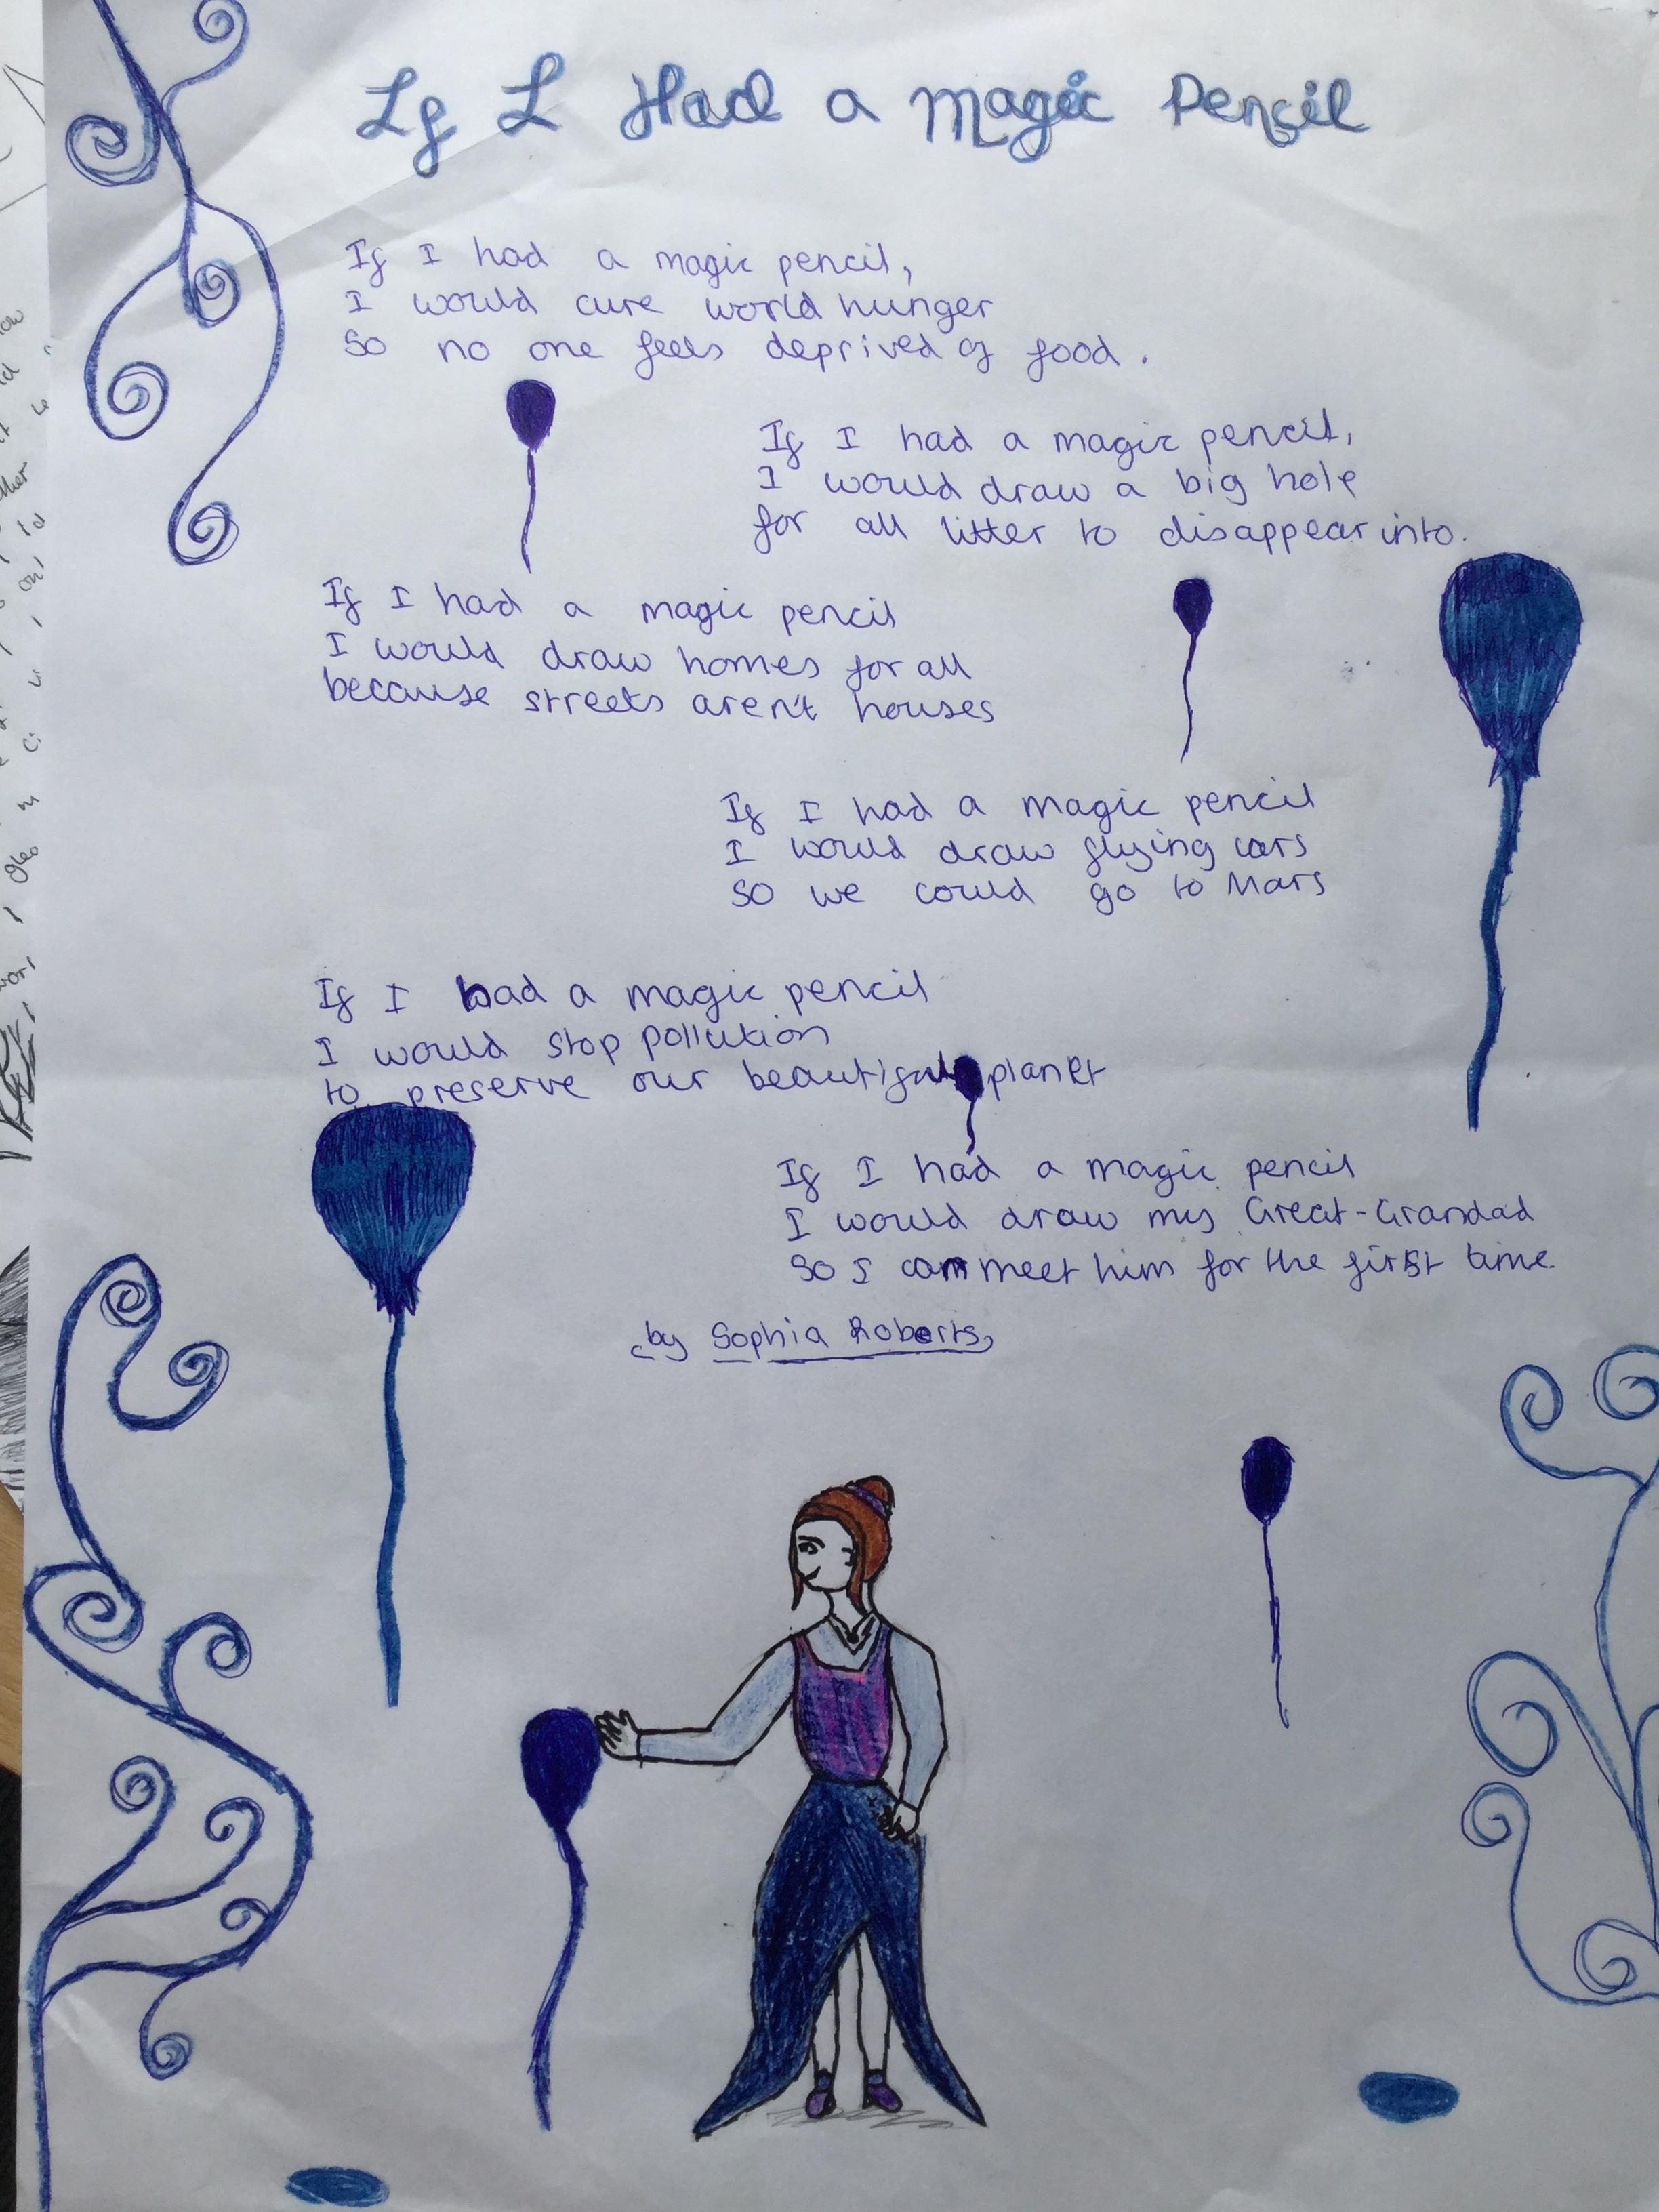 If I Had a Magic Pencil
If I had a magic pencil,
I would cure world hunger
So no one feels deprived of food.
If I had a magic pencil,
I would draw a big hole
for all litter to disappear into.
If I had a magic pencil
I would draw homes for all
because streets aren't houses
If I had a magic pencil
I would draw flying cars
so we could go to Mars
If I had a magic pencil
I would stop pollution
to preserve our beautiful planet
If I had a magic pencil
I would draw my Great-Grandad
so I can meet him for the first time.
by Sophia Roberts